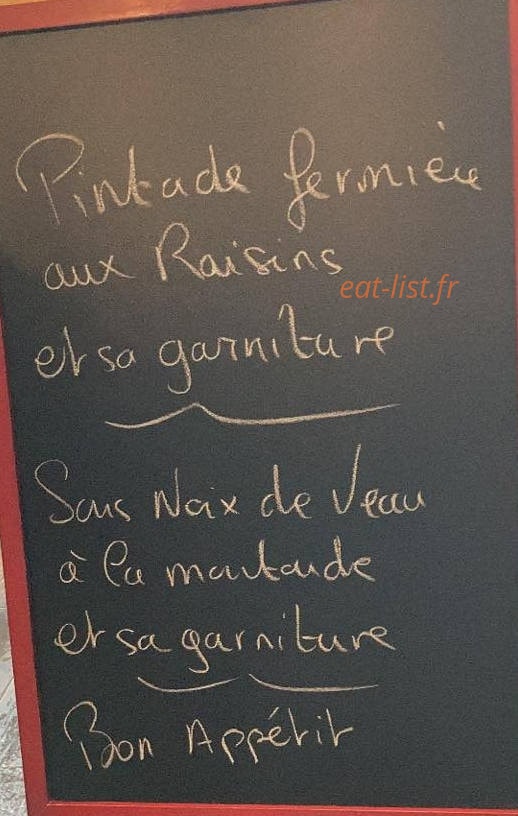 Pintade fermière
aux Raisins
eat-list.fr
et sa garniture
Sous Noix de Veau
à la moutarde
et sa garniture
Bon Appétit